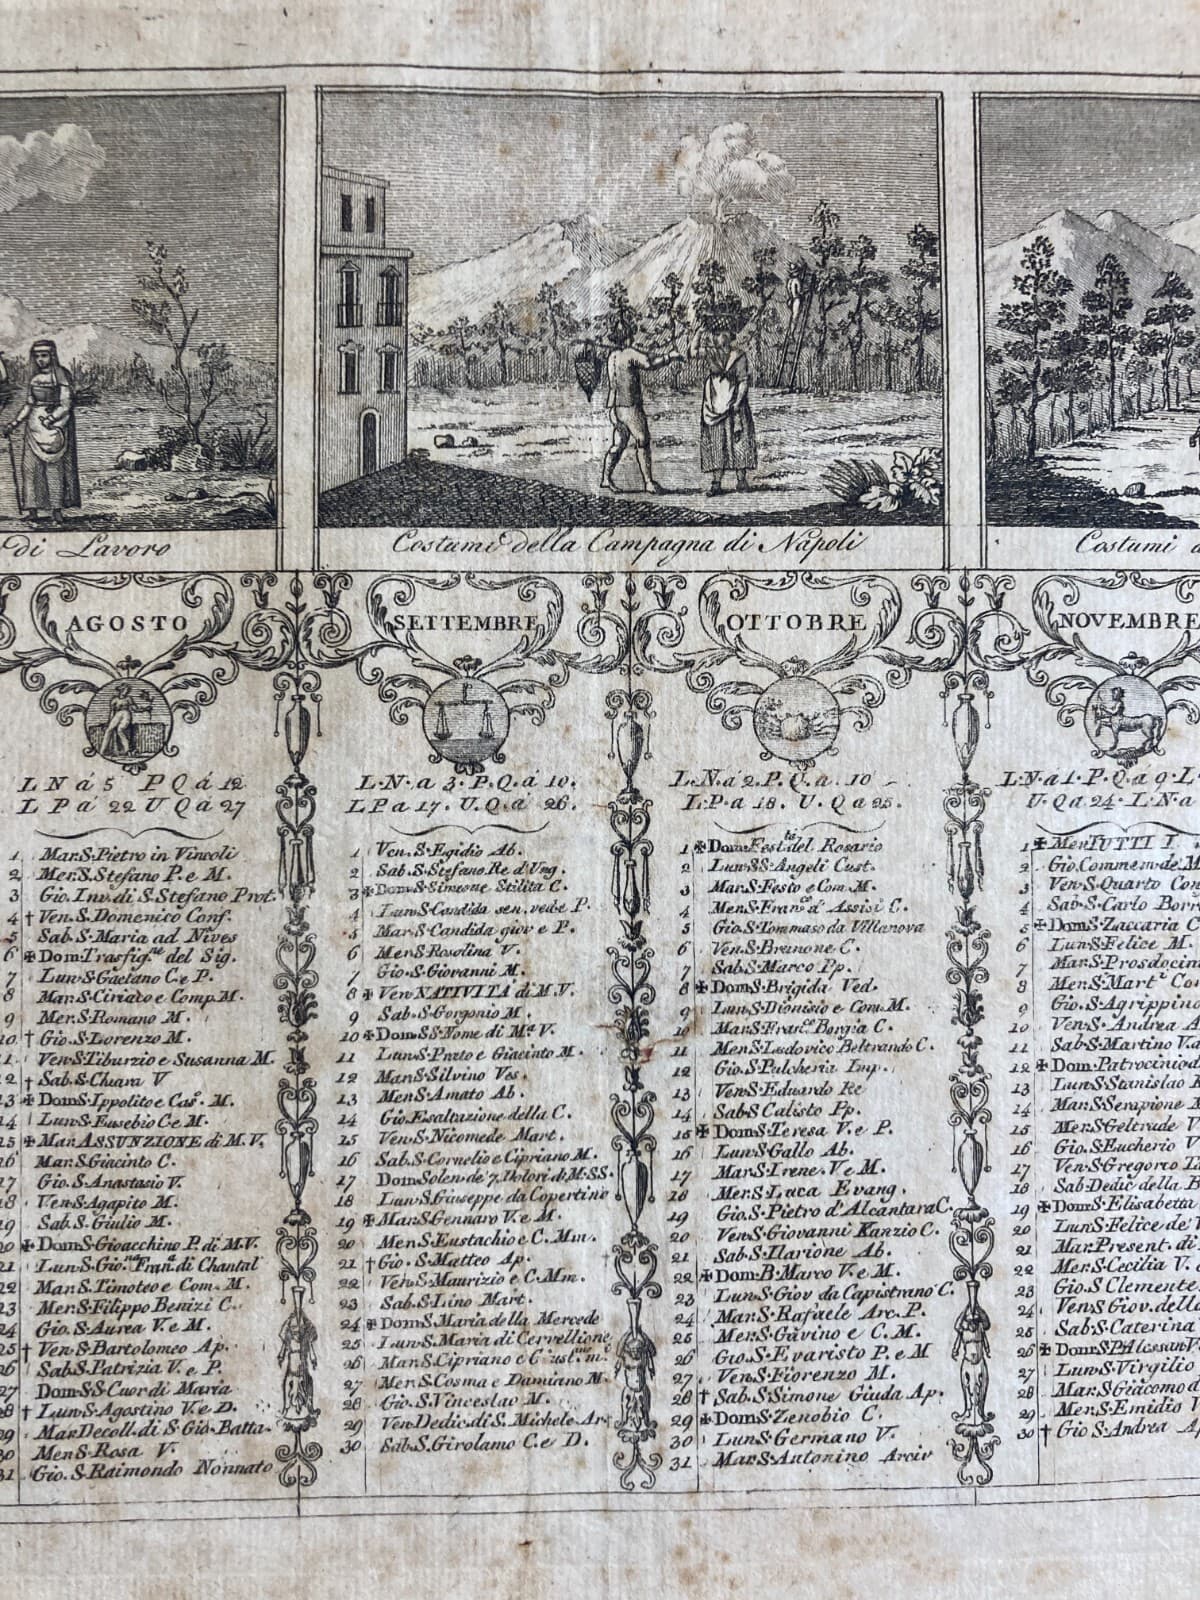 di Lavoro
Costumi della Campagna di Napoli
Costumi
AGOSTO
L N á 5 P Q á 12
L P á 22 U Q á 27
1 Mar. S. Pietro in Vincoli
2 Mer. S. Stefano P. e M.
3 Gio. Inv. di S. Stefano Prot.
4 † Ven. S. Domenico Conf.
5 Sab. S. Maria ad Nives
6 ✠ Dom. Trasfig.ne del Sig.
7 Lun. S. Gaetano C. e P.
8 Mar. S. Ciriaco e Comp. M.
9 Mer. S. Romano M.
10 † Gio. S. Lorenzo M.
11 Ven. S. Tiburzio e Susanna M.
12 † Sab. S. Chiara V
13 ✠ Dom. S. Ippolito e Cas.o M.
14 Lun. S. Eusebio C. e M.
15 ✠ Mar. ASSUNZIONE di M. V.
16 Mar. S. Giacinto C.
17 Gio. S. Anastasio V.
18 Ven. S. Agapito M.
19 Sab. S. Giulio M.
20 ✠ Dom. S. Gioacchino P. di M. V.
21 Lun. S. Gio.na Fran.a di Chantal
22 Mar. S. Timoteo e Com. M.
23 Mer. S. Filippo Benizi C.
24 Gio. S. Aurea V. e M.
25 † Ven. S. Bartolomeo Ap.
26 Sab. S. Patrizia V. e P.
27 Dom. SS Cuor di Maria
28 † Lun. S. Agostino V. e D.
29 Mar. Decoll. di S. Gio. Batta.
30 Men. S. Rosa V.
31 Gio. S. Raimondo Nonnato
SETTEMBRE
L. N. a 3. P. Q. á 10.
L P a 17. U. Q. a 26.
1 Ven. S. Egidio Ab.
2 Sab. S. Stefano. Re d'Ung.
3 ✠ Dom. S. Simeone Stilita C.
4 Lun. S. Candida sen. ved. e P.
5 Mar. S. Candida giov e P.
6 Mer. S. Rosolina V.
7 Gio. S. Giovanni M.
8 ✠ Ven. NATIVITÁ di M. V.
9 Sab. S. Gorgonio M.
10 ✠ Dom. SS. Nome di M.a V.
11 Lun. S. Proto e Giacinto M.
12 Mar. S. Silvino Ves.
13 Men. S. Amato Ab.
14 Gio. Esaltazione della C.
15 Ven. S. Nicomede Mart.
16 Sab. S. Cornelio e Cipriano M.
17 Dom. Solen. de' 7. Dolori di M. SS.
18 Lun. S. Giuseppe da Copertino
19 ✠ Mar. S. Gennaro V. e M.
20 Men. S. Eustachio e C. Mm.
21 † Gio. S. Matteo Ap.
22 Ven. S. Maurizio e C. Mm.
23 Sab. S. Lino Mart.
24 ✠ Dom. S. Maria della Mercede
25 Lun. S. Maria di Cervellione
26 Mar. S. Cipriano e
27 Mer. S. Cosma e Damiano M.
28 Gio. S. Vinceslao M.
29 Ven. Dedic. di S. Michele Ar.
30 Sab. S. Girolamo C. e D.
OTTOBRE
L. N. á 2. P. Q. a. 10
L. P. a 18. U. Q a 25.
1 ✠ Dom. Fest.tá del Rosario
2 Lun. SS. Angeli Cust.
3 Mar. S. Festo e Com. M.
4 Mer. S. Fran.co d'Assisi C.
5 Gio. S. Tommaso da Villanova
6 Ven. S. Brunone C.
7 Sab. S. Marco Pp.
8 ✠ Dom. S. Brigida Ved.
9 Lun. S. Dionisio e Com. M.
10 Mar. S. Fran.co Borgia C.
11 Men. S. Ludovico Beltrando C.
12 Gio. S. Pulcheria Imp.
13 Ven. S. Eduardo Re
14 Sab. S Calisto Pp.
15 ✠ Dom. S. Teresa V. e P.
16 Lun. S. Gallo Ab.
17 Mar. S. Irene. V. e M.
18 Mer. S. Luca Evang.
19 Gio. S. Pietro d'Alcántara C.
20 Ven. S. Giovanni Kanzio C.
21 Sab. S. Ilarione Ab.
22 ✠ Dom. B. Marco V. e M.
23 Lun. S. Giov da Capistrano C.
24 Mar. S. Rafaele Arc. P.
25 Mer. S. Gavino e C. M.
26 Gio. S. Evaristo P. e M
27 Ven. S. Fiorenzo M.
28 † Sab. S. Simone Giuda Ap.
29 ✠ Dom. S. Zenobio C.
30 Lun. S. Germano V.
31 Mar. S. Antonino Arciv
NOVEMBRE
L: N. á 1. P. Q. a 9. L.
U. Q a 24. L. N. a
1 ✠ Mer. TUTTI I
2 Gio. Commem. de' M.
3 Ven. S. Quarto Con
4 Sab. S. Carlo Borr
5 ✠ Dom. S. Zaccaria C
6 Lun. S. Felice M.
7 Mar. S. Prosdocim
8 Mer. S. Mart.o Con
9 Gio. S. Agrippino
10 Ven. S. Andrea A
11 Sab. S. Martino V. a
12 ✠ Dom. Patrocinio d
13 Lun. S. Stanislao
14 Mar. S. Serapione M
15 Mer. S. Geltrude V
16 Gio. S. Eucherio V
17 Ven. S. Gregorio T
18 Sab. Dedic. della B
19 ✠ Dom. S. Elisabetta
20 Lun. S. Felice de' V
21 Mar. Present. di
22 Mer. S. Cecilia V. e
23 Gio. S. Clemente
24 Ven. S. Giov. della
25 Sab. S. Caterina
26 ✠ Dom. S.
27 Lun. S. Virgilio
28 Mar. S. Giacomo d
29 Mer. S. Emidio V
30 † Gio. S. Andrea Ap